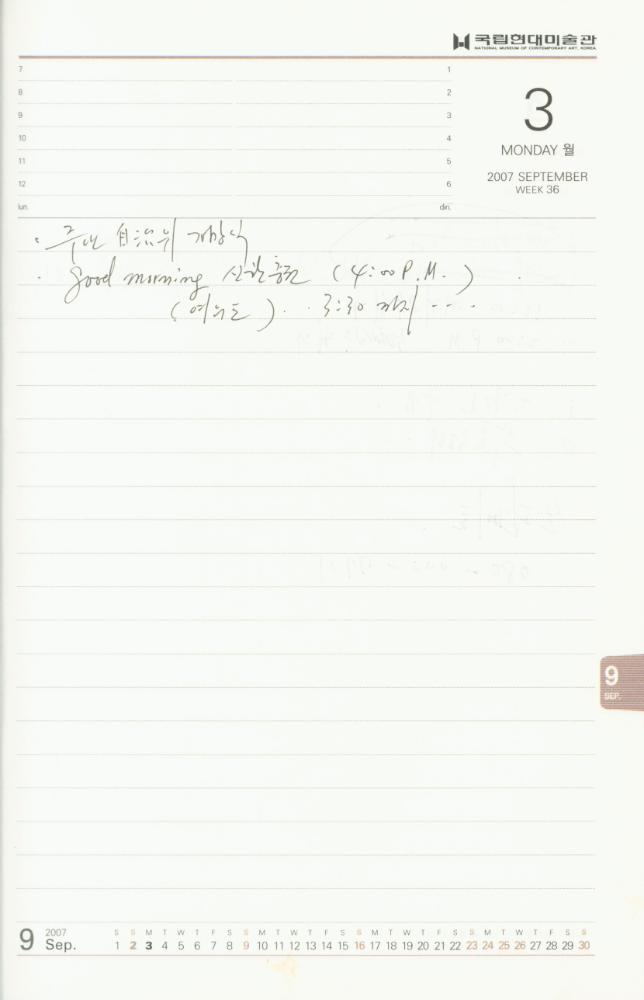 국립현대미술관
NATIONAL MUSEUM OF CONTEMPORARY ART, KOREA
7 1
8 2
9 3
10 4
11 5
12 6
lun. din.
3
MONDAY 월
2007 SEPTEMBER
WEEK 36
· 주민 自治위 개강식
· good morning 신한증권 (4:00 P.M.)
(여의도) · · 3:30 까지 ---
9
SEP.
9 2007 Sep.
S S M T W T F S S M T W T F S S M T W T F S S M T W T F S S
1 2 3 4 5 6 7 8 9 10 11 12 13 14 15 16 17 18 19 20 21 22 23 24 25 26 27 28 29 30